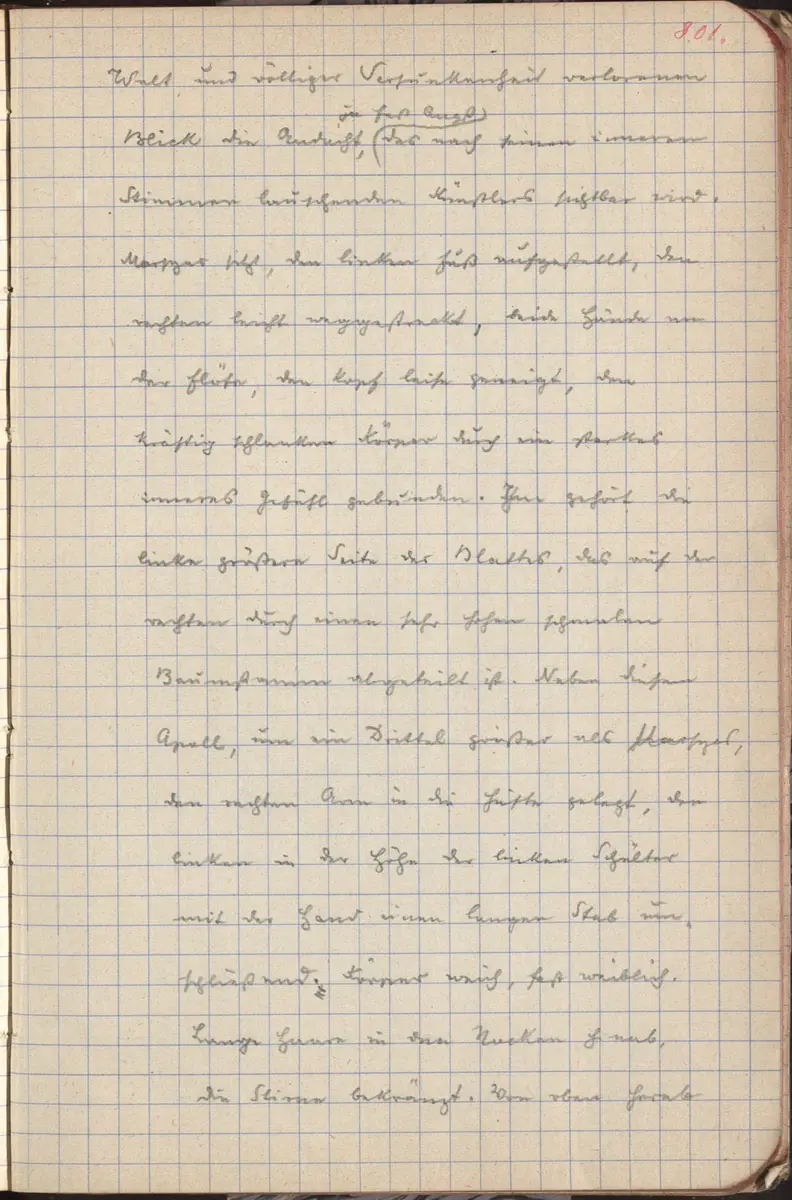 801.
Welt und völliger Versunkenheit verlorenen
ja fast Angst
Blick die Andacht, (des nach seinen inneren
Stimmen lauschenden Künstlers sichtbar wird.
Marsyas sitzt, den linken Fuß aufgestellt, den
rechten leicht weggestreckt, beide Hände an
der Flöte, den Kopf leise geneigt, den
kräftig schlanken Körper durch ein starkes
inneres Gefühl gebunden. Ihm gehört die
linke größere Seite des Blattes, das auf der
rechten durch einen sehr hohen schmalen
Baumstamm abgeteilt ist. Neben diesem
Apoll, um ein Drittel größer als Marsyas,
den rechten Arm in die Hüfte gelegt, den
linken in der Höhe der linken Schulter
mit der Hand einen langen Stab um-
schließend. Körper weich, fast weiblich.
Lange Haare in den Nacken hinab,
die Stirne bekränzt. Von oben herab